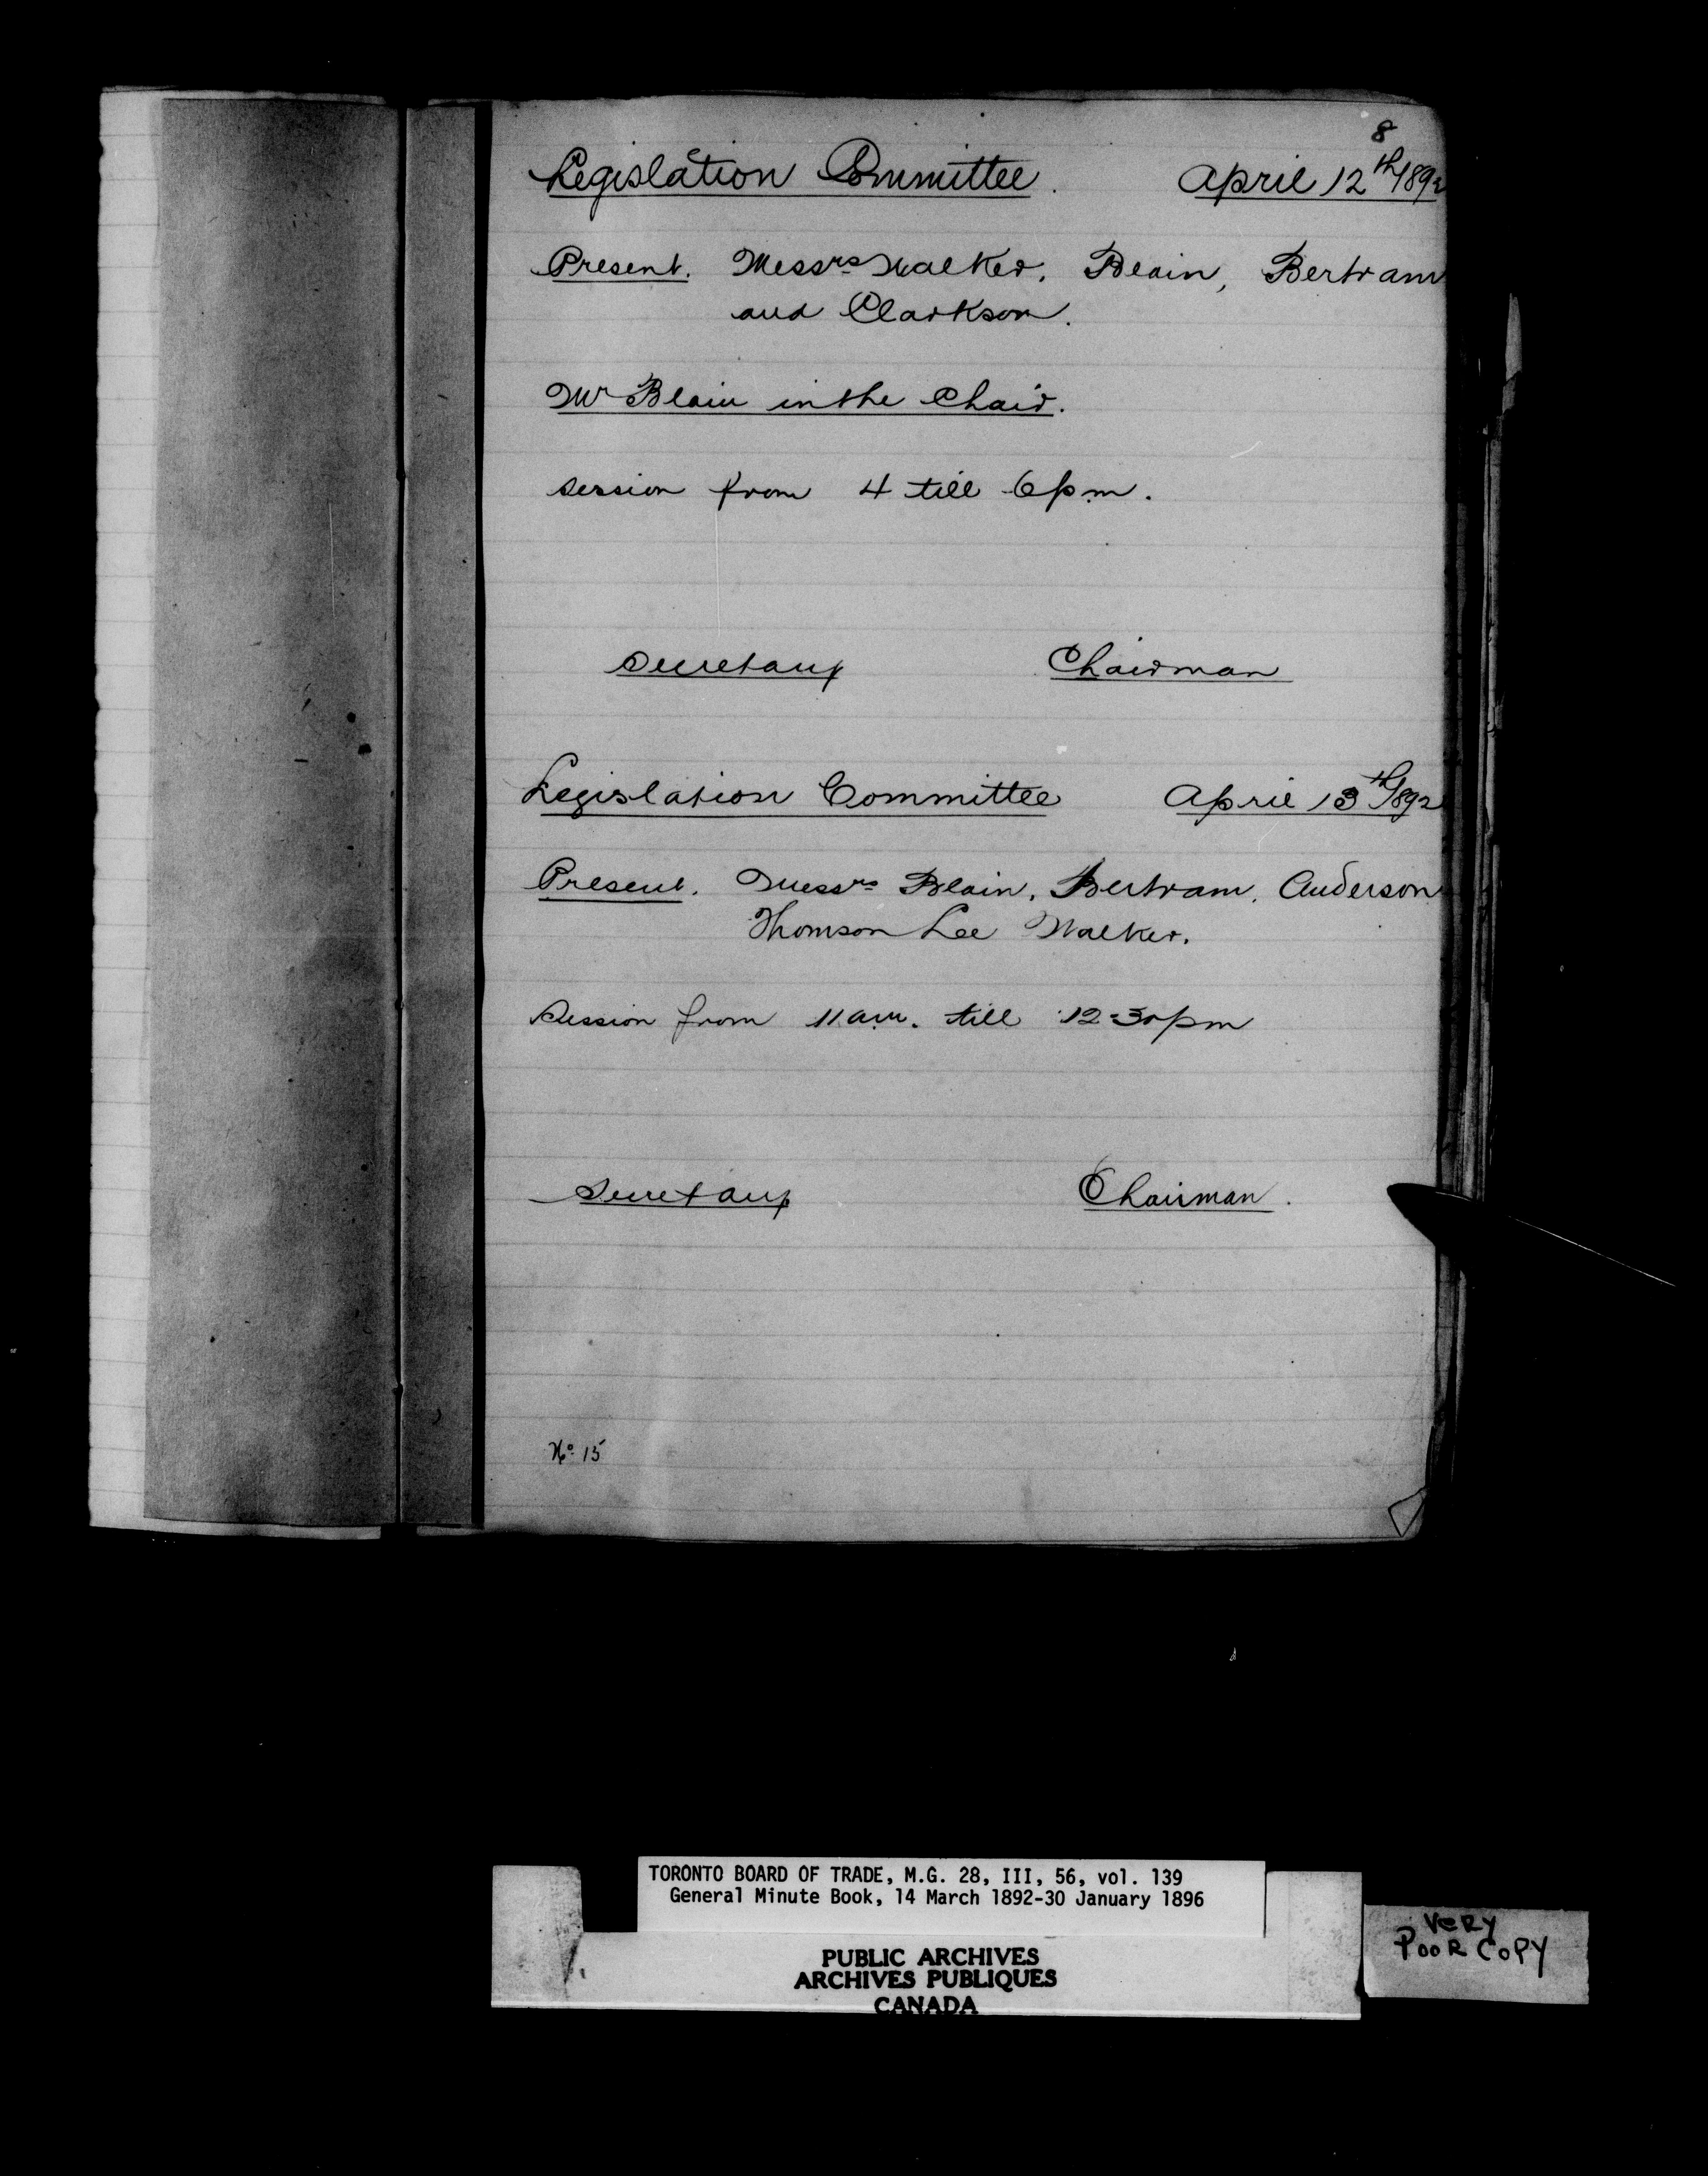 8
Legislation Committee. April 12th/1892
Present. Messrs Walker, Blain, Bertram
and Clarkson.
Mr Blain in the Chair.
Session from 4 till 6 pm.
Secretary Chairman
Legislation Committee April 13th/1892
Present. Messrs Blain, Bertram, Anderson
Thomson Lee Walker.
Session from 11 a.m. till 12-30 pm
Secretary Chairman.
No 15
TORONTO BOARD OF TRADE, M.G. 28, III, 56, vol. 139
General Minute Book, 14 March 1892-30 January 1896
PUBLIC ARCHIVES
ARCHIVES PUBLIQUES
CANADA
VeRy
PooR CoPY